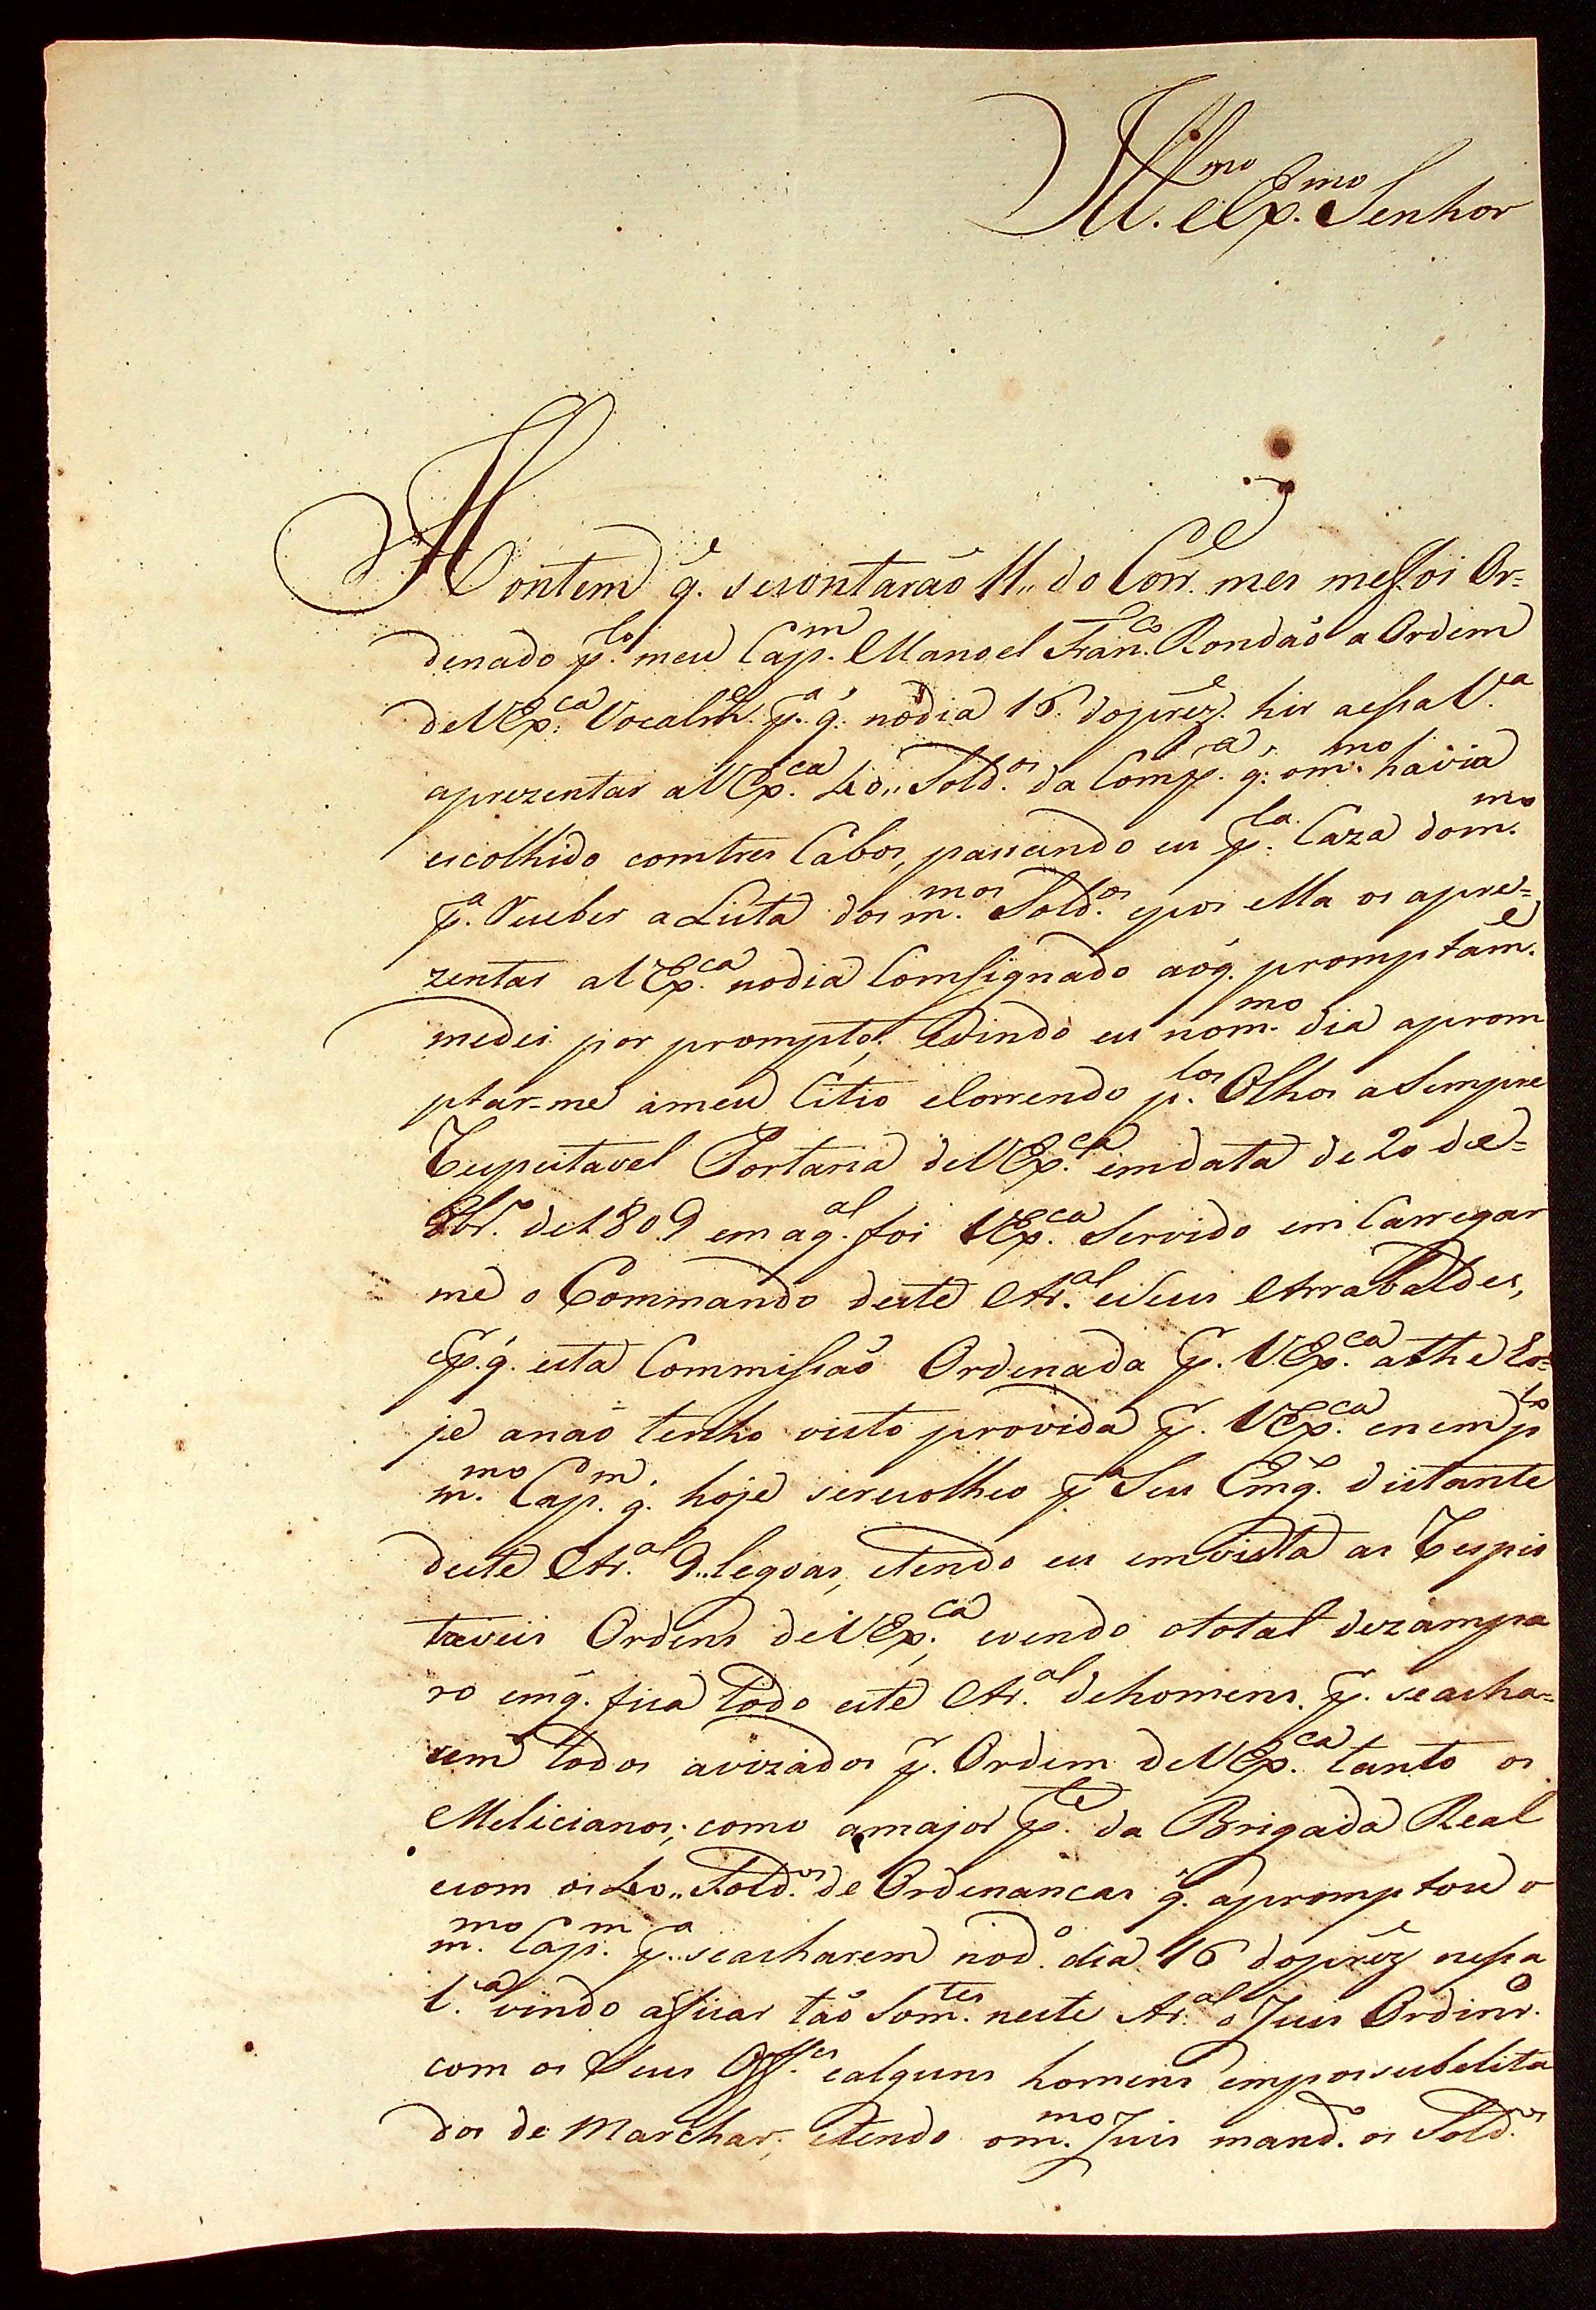 Ill.mo e Ex.mo Senhor
Hontem q. secontarão 11,, do Corr.e mes mefoi Or=
denado p.lo meu Cap.m Manoel Fran.co Rondão a Ordem
de VEx.ca Vocalm.e p.a q. nodia 16. doprez.e hir aessa V.a
aprezentar a VEx.ca 40,, Sold.os da Comp.a q. om.mo havia
escolhido comtres Cabos, passando eu p.la Caza dom.mo
p.a Receber a Lista dos m.mos Sold.os epor ella os apre=
zentar a VEx.ca nodia Comsignado aoq. promptam.e
medei por prompto; Evindo eu nom.mo dia aprom
ptar-me ameu Citio eCorrendo p.los Olhos aSempre
Respeitavel Portaria de VEx.ca emdata de 20 de=
8br.o de1809 em aq.al foi VEx.ca Servido em Carregar
me o Commando deste Ar.al eSeus Arrabaldes,
ep.q. esta Commissão Ordenada p. VEx.ca athe Eo=
je anão tenho visto provida p. VEx.ca enem p.lo
m.mo Cap.m q. hoje serecolheo p.a Seu Eng.o distante
deste Ar.al 9,, legoas, etendo eu emvista as Respei
taveis Ordens de VEx.ca, evendo ototal dezampa
ro emq. fica todo este Ar.al dehomens. p. seacha=
rem todos avizados p. Ordem de VEx.ca tanto os
Milicianos; como amajor p.te da Brigada Real
ecom os 40,, Sold.os de Ordenancas q. apromptou o
m.mo Cap.m p.a seacharem nod.o dia 16 doprez.e nessa
V.a vindo aficar tão Som.tes neste Ar.al o Juis Ordinr.o
com os Seus Off.es ealguns homens empossubelita
dos de Marchar; etendo om.mo Juis mand.o os Sold.os